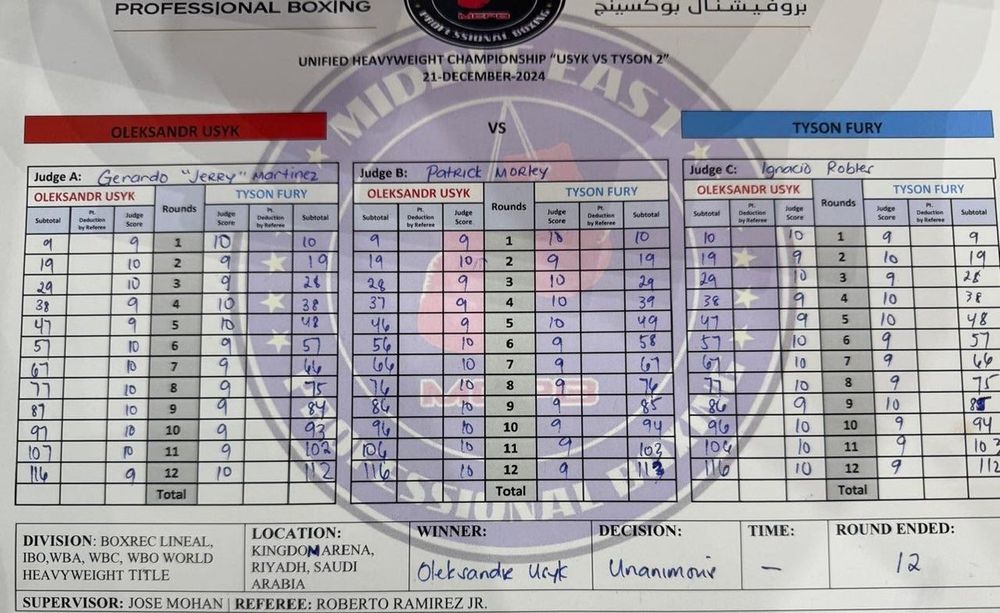 PROFESSIONAL BOXING
MEPB
PROFESSIONAL BOXING
بروفيشنال بوكسينج
UNIFIED HEAVYWEIGHT CHAMPIONSHIP "USYK VS TYSON 2"
21-DECEMBER-2024
MIDDLE EAST
OLEKSANDR USYK VS TYSON FURY
Judge A: Gerardo "JERRY" Martinez Judge B: Patrick Morley Judge C: Ignacio Robles
OLEKSANDR USYK Rounds TYSON FURY OLEKSANDR USYK Rounds TYSON FURY OLEKSANDR USYK Rounds TYSON FURY
Subtotal Pt. Deduction by Referee Judge Score Judge Score Pt. Deduction by Referee Subtotal Subtotal Pt. Deduction by Referee Judge Score Judge Score Pt. Deduction by Referee Subtotal Subtotal Pt. Deduction by Referee Judge Score Judge Score Pt. Deduction by Referee Subtotal
9 9 1 10 10 9 9 1 10 10 10 10 1 9 9
19 10 2 9 19 19 10 2 9 19 19 9 2 10 19
29 10 3 9 28 28 9 3 10 29 29 10 3 9 28
38 9 4 10 38 37 9 4 10 39 38 9 4 10 38
47 9 5 10 48 46 9 5 10 49 47 9 5 10 48
57 10 6 9 57 56 10 6 9 58 57 10 6 9 57
67 10 7 9 66 66 10 7 9 67 67 10 7 9 66
77 10 8 9 75 76 10 8 9 76 77 10 8 9 75
87 10 9 9 84 86 10 9 9 85 86 9 9 10 85
97 10 10 9 93 96 10 10 9 94 96 10 10 9 94
107 10 11 9 102 106 10 11 9 103 106 10 11 9 103
116 9 12 10 112 116 10 12 9 112 116 10 12 9 112
Total Total Total
MEPB
PROFESSIONAL BOXING
DIVISION: BOXREC LINEAL, IBO,WBA, WBC, WBO WORLD HEAVYWEIGHT TITLE
LOCATION: KINGDOM ARENA, RIYADH, SAUDI ARABIA
WINNER: Oleksandr Usyk
DECISION: Unanimous
TIME: —
ROUND ENDED: 12
SUPERVISOR: JOSE MOHAN | REFEREE: ROBERTO RAMIREZ JR.